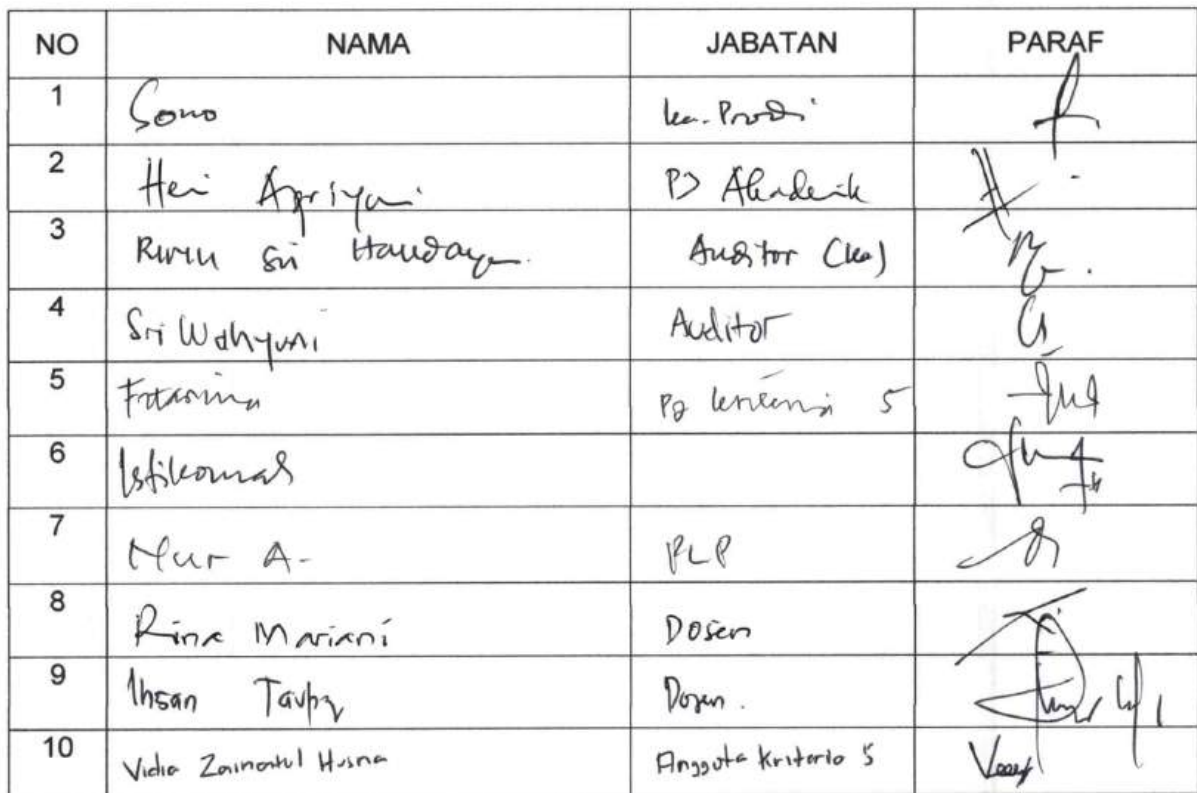 NO NAMA JABATAN PARAF
1 Sono Ka. Prodi
2 Heri Apriyani PJ Akademik
3 Sri Handayani Auditor (Ka)
4 Sri Wahyuni Auditor
5 PJ Kriteria 5
6 Istikomah
7 Nur A. PLP
8 Rina Mariani Dosen
9 Ihsan Taufiq Dosen.
10 Vidia Zainatul Husna Anggota Kriteria 5